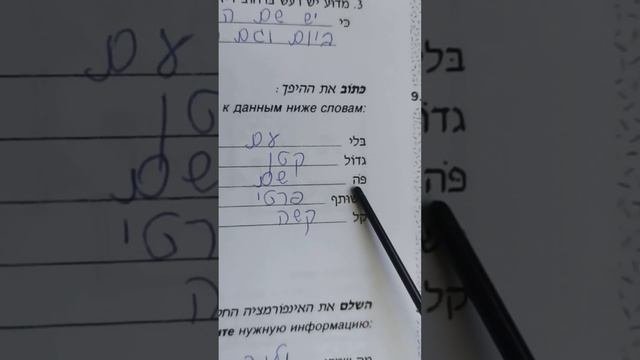 3. מדוע יש רעש ברחוב
כי יש שם
ביום וגם
9.
כתוב את ההיפך:
к данным ниже словам:
בלי עם
גדול קטן
פֹּה שם
שותף פרטי
קל קשה
השלם את האינפורמציה
нужную информацию: